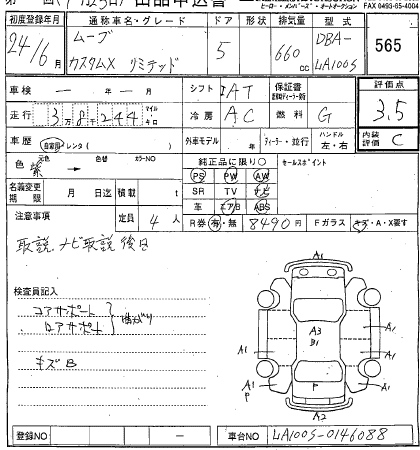 出品申込書 FAX 0493-65-4004
初度登録年月 通称車名・グレード ドア 形状 排気量 型式
24/6 ムーブ カスタムX リミテッド 5 660cc DBA-LA100S 565
車検 ー年ー月 シフト IAT 保証書 評価点
走行 3万8千244 マイル キロ 冷房 AC 燃料 G 3.5
車歴 自家用・レンタ( ) 外車モデル ディーラー・並行 ハンドル 左・右 内装評価 C
色 紫 元色 → 色替 カラーNO 純正品に限り○ セールスポイント
PS PW AW
名義変更期限 月 日迄 積載 t SR TV ナビ
革 エアB ABS
注意事項 定員 4人 R券 有・無 8490円 Fガラス キズ・A・X要す
取説 ナビ取説 後日
検査員記入
コアサポート
ロアサポート
キズB
A1
A3
B1
A1 A1
A1
A1 P
P
A1
A2
登録NO ー 車台NO LA100S-0146088